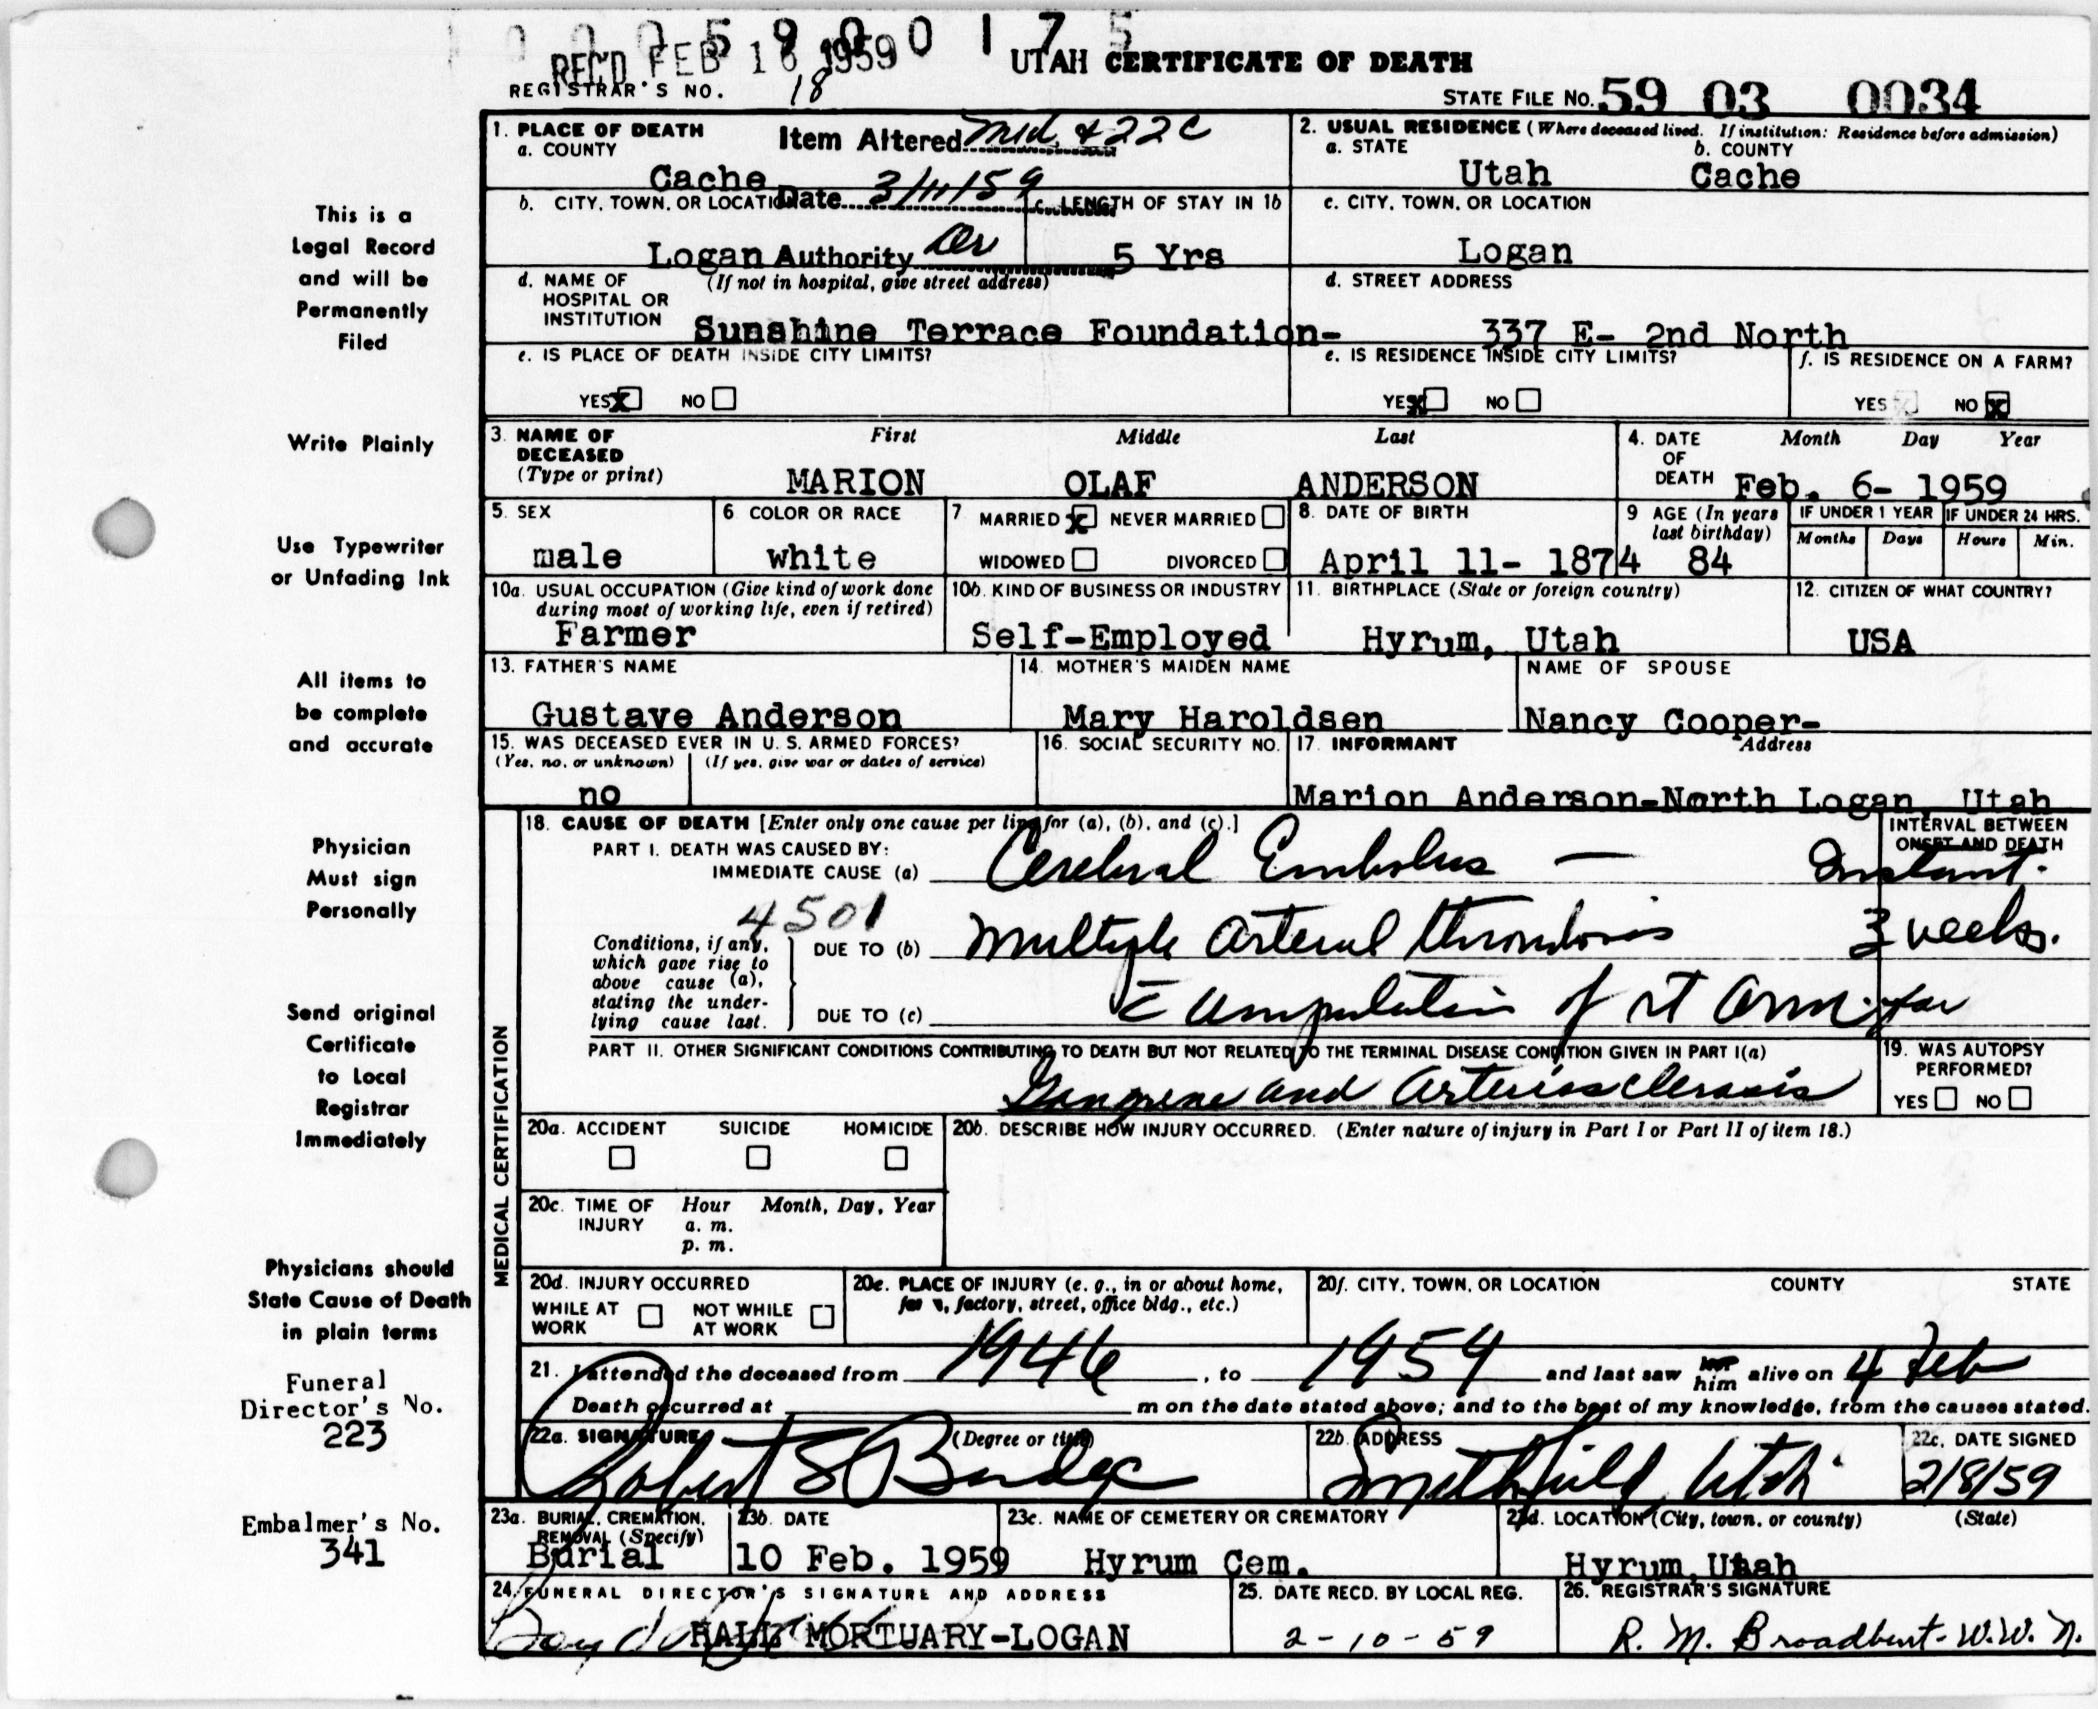 0 0 0 5 9 0 0 1 7 5
REC'D FEB 16 1959
UTAH CERTIFICATE OF DEATH
REGISTRAR'S NO. 18
STATE FILE No. 59 03 0034
1. PLACE OF DEATH
a. COUNTY
Cache
Item Altered Med & 22c
Date 3/11/59
Authority
2. USUAL RESIDENCE (Where deceased lived. If institution: Residence before admission)
a. STATE b. COUNTY
Utah Cache
b. CITY, TOWN, OR LOCATION
Logan
c. LENGTH OF STAY IN 1b
5 Yrs
c. CITY, TOWN, OR LOCATION
Logan
d. NAME OF HOSPITAL OR INSTITUTION (If not in hospital, give street address)
Sunshine Terrace Foundation-
d. STREET ADDRESS
337 E- 2nd North
e. IS PLACE OF DEATH INSIDE CITY LIMITS?
YES X NO
e. IS RESIDENCE INSIDE CITY LIMITS?
YES X NO
f. IS RESIDENCE ON A FARM?
YES NO X
3. NAME OF DECEASED (Type or print)
First Middle Last
MARION OLAF ANDERSON
4. DATE OF DEATH Month Day Year
Feb. 6- 1959
5. SEX
male
6 COLOR OR RACE
white
7 MARRIED X NEVER MARRIED
WIDOWED DIVORCED
8. DATE OF BIRTH
April 11- 1874
9 AGE (In years last birthday)
84
IF UNDER 1 YEAR
Months Days
IF UNDER 24 HRS.
Hours Min.
10a. USUAL OCCUPATION (Give kind of work done during most of working life, even if retired)
Farmer
10b. KIND OF BUSINESS OR INDUSTRY
Self-Employed
11. BIRTHPLACE (State or foreign country)
Hyrum, Utah
12. CITIZEN OF WHAT COUNTRY?
USA
13. FATHER'S NAME
Gustave Anderson
14. MOTHER'S MAIDEN NAME
Mary Haroldsen
NAME OF SPOUSE
Nancy Cooper-
15. WAS DECEASED EVER IN U. S. ARMED FORCES?
(Yes, no, or unknown) (If yes, give war or dates of service)
no
16. SOCIAL SECURITY NO.
17. INFORMANT Address
Marion Anderson-North Logan, Utah
MEDICAL CERTIFICATION
18. CAUSE OF DEATH [Enter only one cause per line for (a), (b), and (c).]
INTERVAL BETWEEN ONSET AND DEATH
PART I. DEATH WAS CAUSED BY:
IMMEDIATE CAUSE (a) Cerebral Embolus — Instant.
4501
Conditions, if any, which gave rise to above cause (a), stating the underlying cause last.
DUE TO (b) Multiple Arterial thrombosis 3 weeks.
DUE TO (c) c̄ Amputation of rt arm for
PART II. OTHER SIGNIFICANT CONDITIONS CONTRIBUTING TO DEATH BUT NOT RELATED TO THE TERMINAL DISEASE CONDITION GIVEN IN PART I(a)
Gangrene and Arteriosclerosis
19. WAS AUTOPSY PERFORMED?
YES NO
20a. ACCIDENT SUICIDE HOMICIDE
20b. DESCRIBE HOW INJURY OCCURRED. (Enter nature of injury in Part I or Part II of item 18.)
20c. TIME OF INJURY Hour Month, Day, Year
a. m.
p. m.
20d. INJURY OCCURRED
WHILE AT WORK NOT WHILE AT WORK
20e. PLACE OF INJURY (e. g., in or about home, farm, factory, street, office bldg., etc.)
20f. CITY, TOWN, OR LOCATION COUNTY STATE
21. I attended the deceased from 1946, to 1959 and last saw him alive on 4 Feb
Death occurred at m on the date stated above; and to the best of my knowledge, from the causes stated.
22a. SIGNATURE (Degree or title)
Robert S Budge
22b. ADDRESS
Smithfield, Utah
22c. DATE SIGNED
2/8/59
23a. BURIAL, CREMATION, REMOVAL (Specify)
Burial
23b. DATE
10 Feb. 1959
23c. NAME OF CEMETERY OR CREMATORY
Hyrum Cem.
23d. LOCATION (City, town, or county) (State)
Hyrum, Utah
24. FUNERAL DIRECTOR'S SIGNATURE AND ADDRESS
HALL MORTUARY-LOGAN
25. DATE RECD. BY LOCAL REG.
2-10-59
26. REGISTRAR'S SIGNATURE
R. M. Broadbent-W.W.N.
This is a
Legal Record
and will be
Permanently
Filed
Write Plainly
Use Typewriter
or Unfading Ink
All items to
be complete
and accurate
Physician
Must sign
Personally
Send original
Certificate
to Local
Registrar
Immediately
Physicians should
State Cause of Death
in plain terms
Funeral
Director's No.
223
Embalmer's No.
341